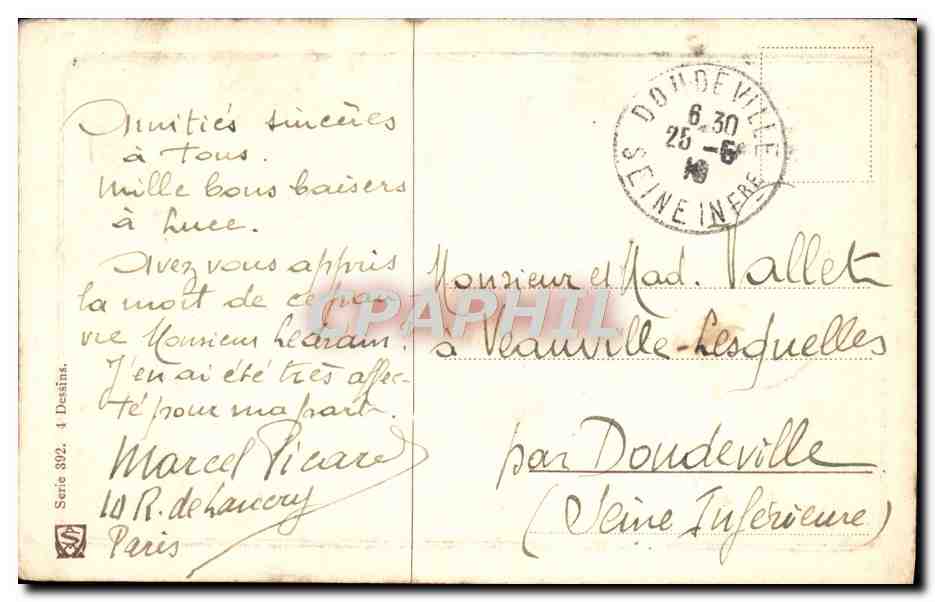 Amitiés sincères
à Tous.
Mille bons baisers
à Luce.
Avez vous appris
la mort de ce pau-
vre Monsieur Ledrain.
J'en ai été très affec-
té pour ma part.
Marcel Picard
10 R. de Lancry
Paris
Serie 392. 4 Dessins.
DOUDEVILLE
6 30
25 -5
SEINE INFRE
Monsieur et Mad. Vallet
à Veauville-Lesquelles
par Doudeville
(Seine Inférieure)
CPAPHIL